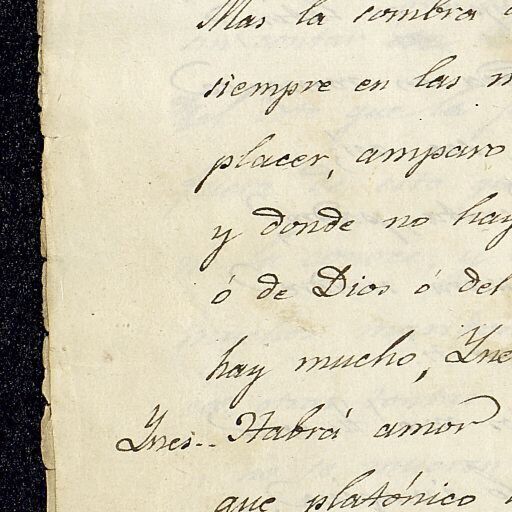 Mas la sombra
siempre en las
placer, amparo
y donde no hay
ó de Dios ó del
hay mucho, Ynes
Ynes.. Habrá amor
que platónico